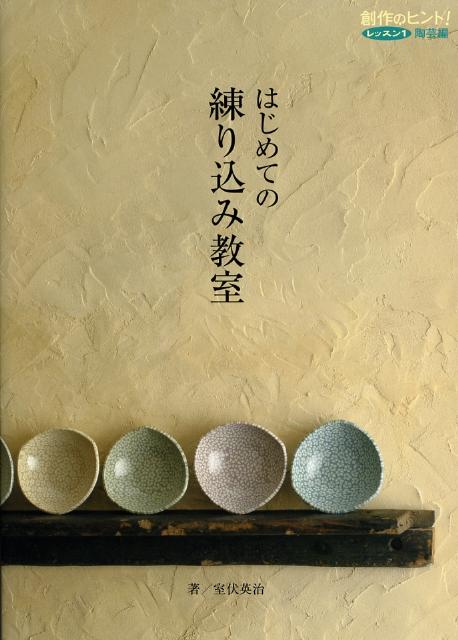 創作のヒント!
レッスン1 陶芸編
はじめての
練り込み教室
著/室伏英治